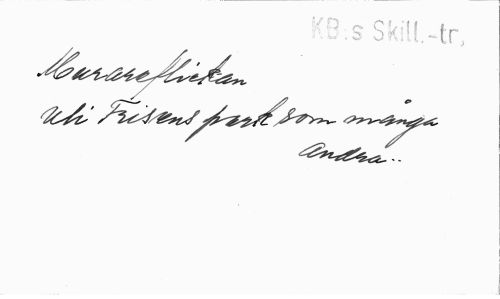 KB:s Skill.-tr,
Murareflickan
Uti Frisens park som många
andra..